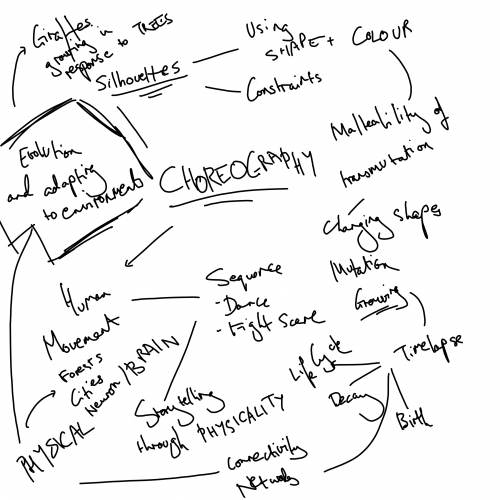 Giraffes
growing in
response to TREES
Silhouettes
Using
SHAPE + COLOUR
Constraints
Malleability of
transmutation
Evolution
and adapting
to environments
CHOREOGRAPHY
Changing shapes
Mutation
Growing
Human
Movement
Sequence
- Dance
- Fight Scene
Forests
Cities
Neuron/BRAIN
PHYSICAL
Storytelling
through PHYSICALITY
Life Cycle
Timelapse
Decay
Birth
Connectivity
Networks